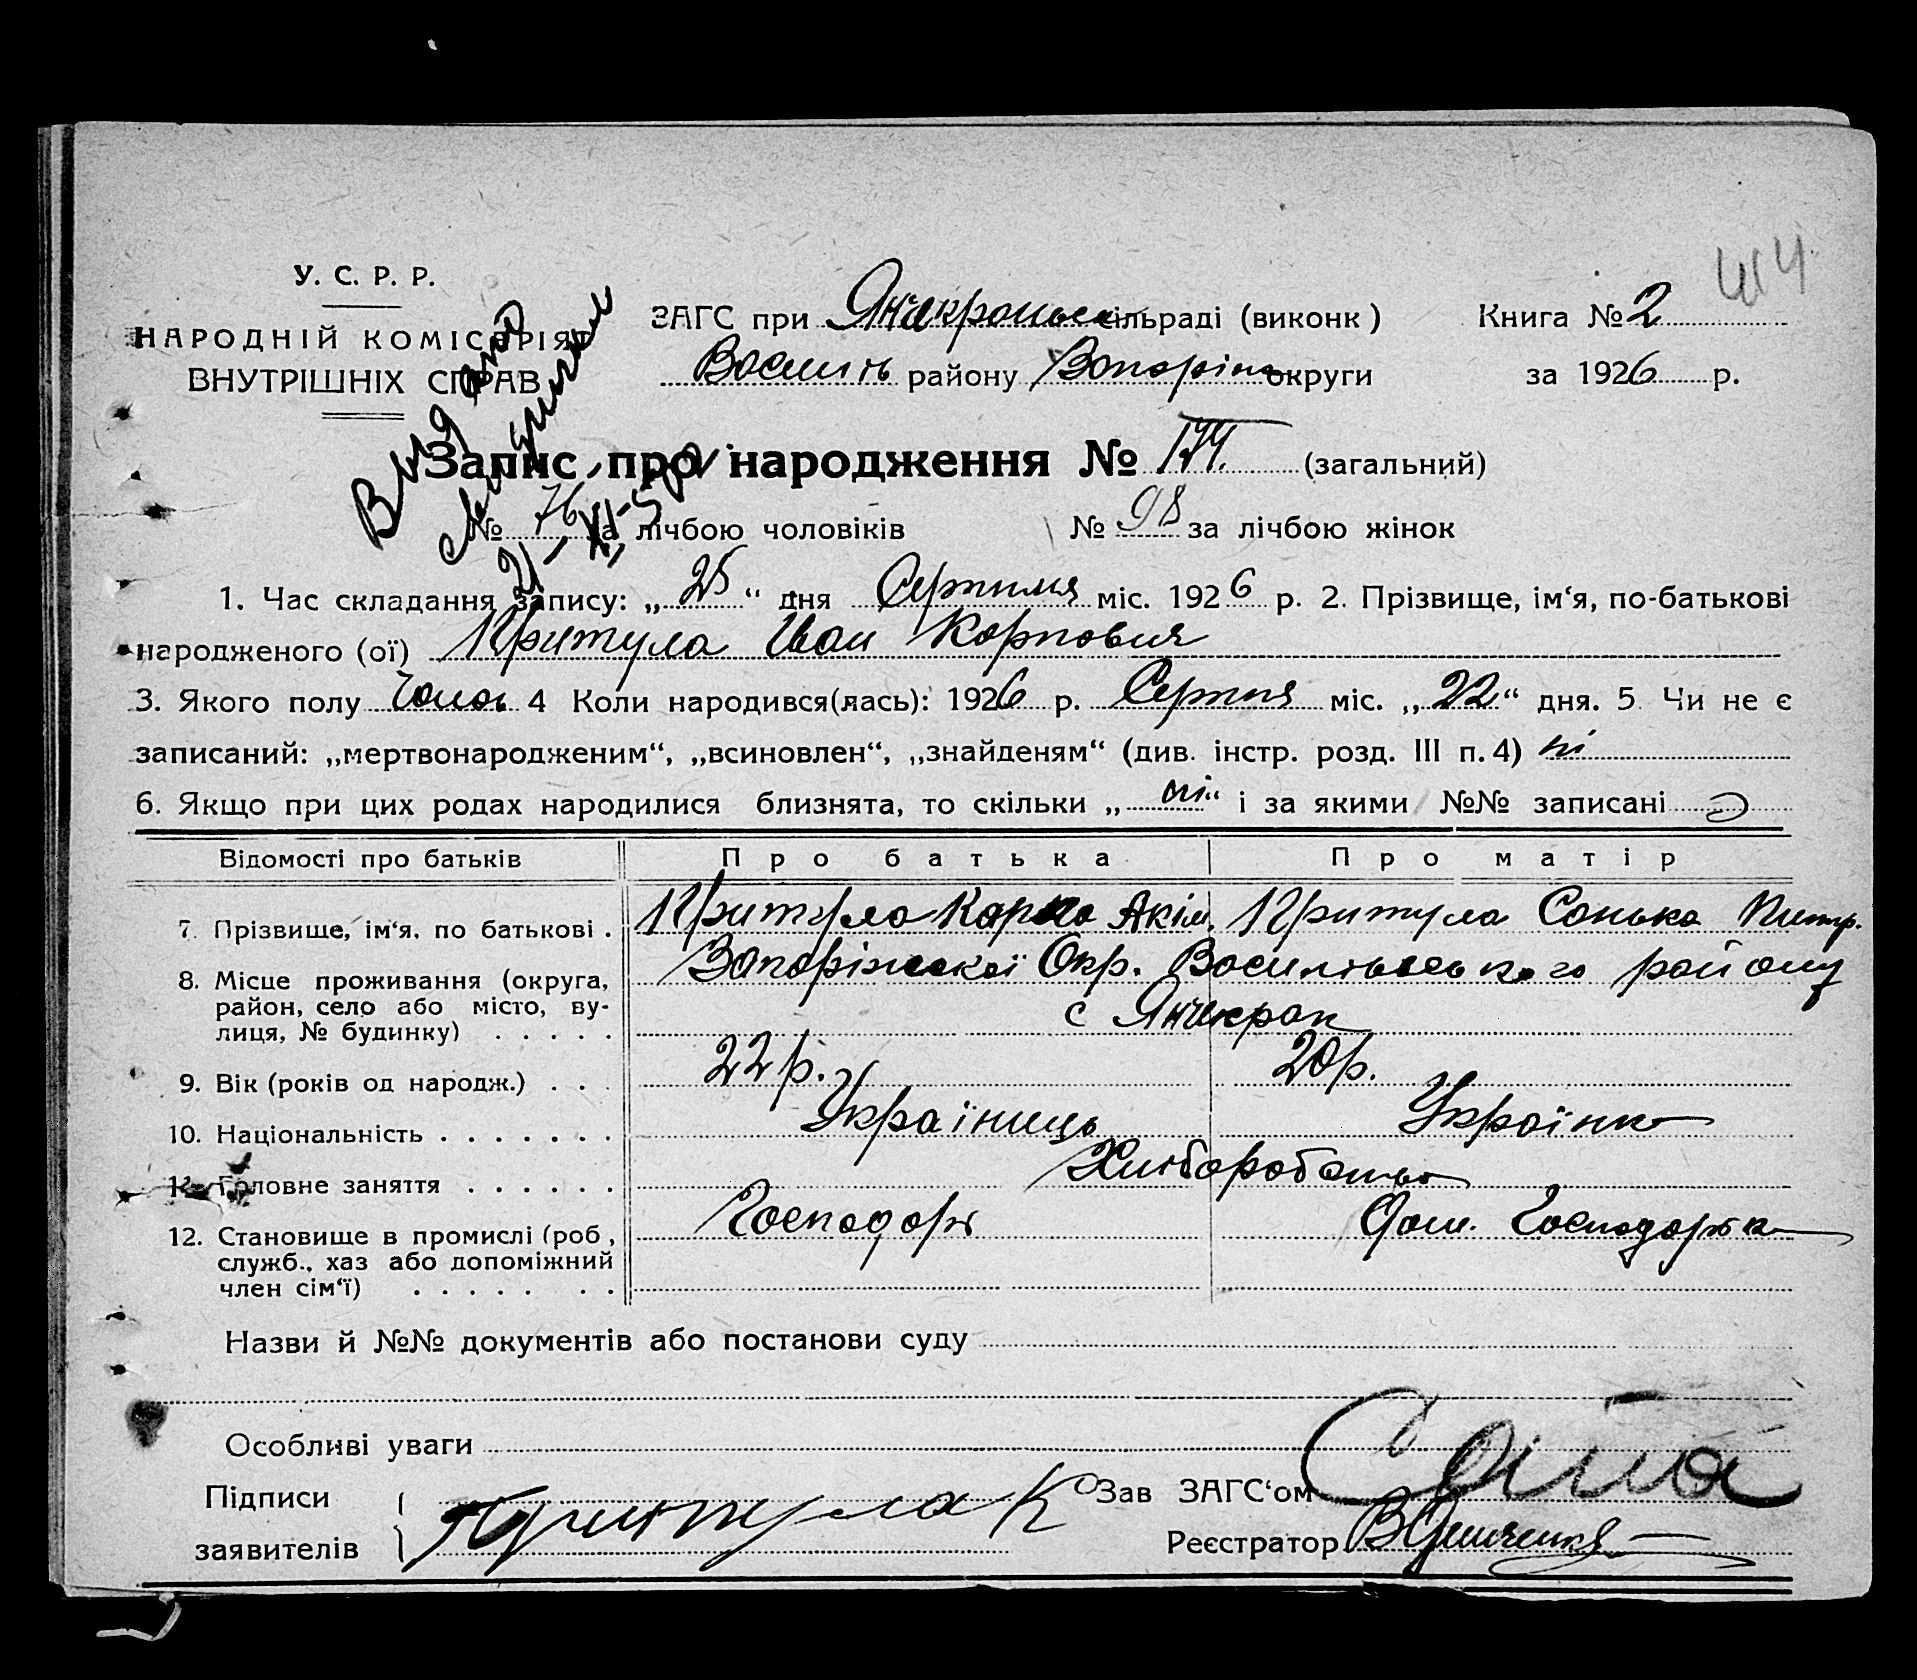 У. С. Р. Р.
НАРОДНІЙ КОМІСАРІЯТ
ВНУТРІШНІХ СПРАВ
Видано
ЗАГС при Янчекранськ сільраді (виконк)
Книга № 2
району Запоріж округи
за 1926 р.
Запис про народження № 174. (загальний)
№ 76 за лічбою чоловіків № 98 за лічбою жінок
1. Час складання запису: „25“ дня Серпня міс. 1926 р. 2. Прізвище, ім‘я, по-батькові
народженого (ої) Притула Іван Карпович
3. Якого полу Чолов 4 Коли народився(лась): 1926 р. Серпня міс. „22“ дня. 5. Чи не є
записаний: „мертвонародженим“, „всиновлен“, „знайденям“ (див. інстр. розд. III п. 4) ні
6. Якщо при цих родах народилися близнята, то скільки „ні“ і за якими №№ записані
Відомості про батьків Про батька Про матір
7. Прізвище, ім‘я, по батькові . Притула Карпо Акім. Притула Сонька Питр.
8. Місце проживання (округа, Запоріжської Окр. Василівського району
район, село або місто, ву-
лиця, № будинку) . . . . . с Янчекрак
9. Вік (років од народж.) . . . 22 р. 20 р.
10. Національність . . . . . . . Українець Українка
11. Головне заняття . . . . . . Хліборобство
12. Становище в промислі (роб., Господар Дом. Господарка
служб., хаз або допоміжний
член сім‘ї) . . . . . . .
Назви й №№ документів або постанови суду
Особливі уваги
Підписи
заявителів
Притула К
Зав ЗАГС‘ом
Реєстратор